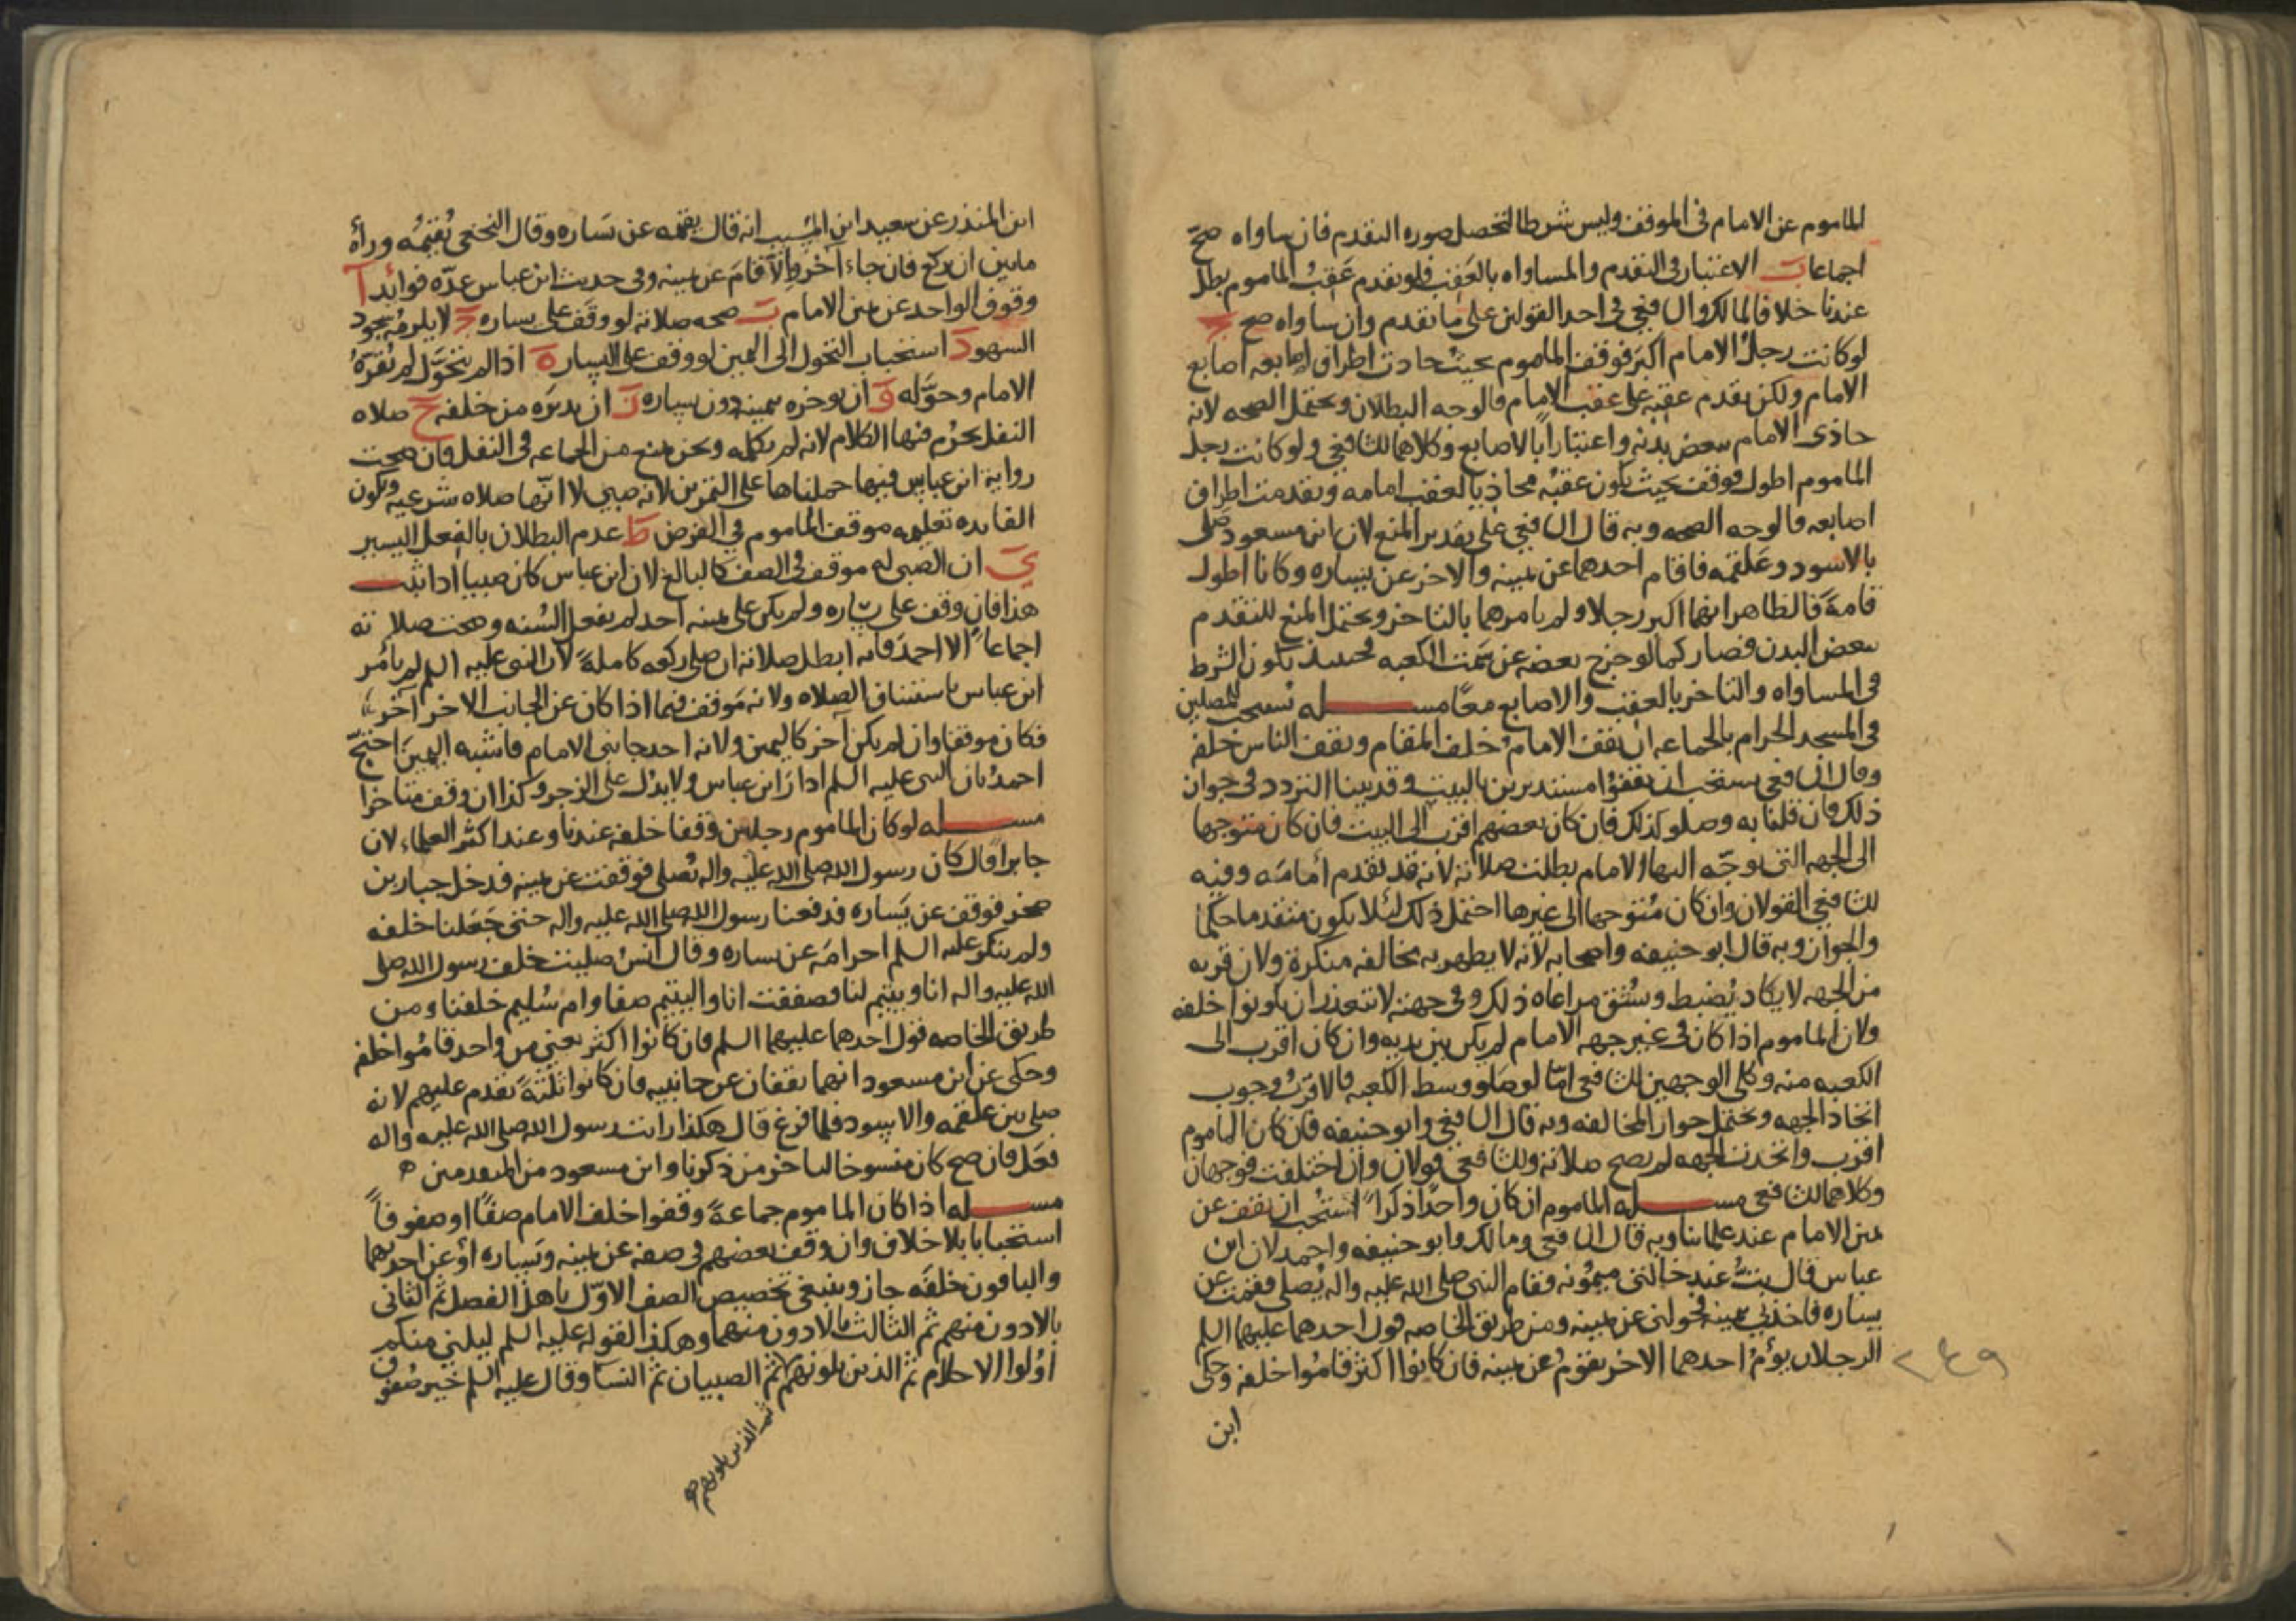 الماموم عن الامام فى الموقف وليس شرطا لتحصل صوره التقدم فان ساواه صحّ
اجماعا بَ الاعتبار فى التقدم والمساواه بالعَقِب فلو تقدم عَقِبُ الماموم بطل
عندنا خلافا لمالك والشافعي فى احد القولين على ما تقدم وان ساواه صح جَ
لو كانت رجلُ الامام اكبر فوقف الماموم بحيث حاذت اطراف اصابعه اصابع
الامام ولكن تقدم عقبه على عقب الامام فالوجه البطلان ويحتمل الصحه لانه
حاذى الامام ببعض بدنه واعتباراً بالاصابع وكلاهما للشافعي ولو كانت رجل
الماموم اطول فوقف بحيث يكون عقبُه محاذيا لعقب امامه وتقدمت اطراف
اصابعه فالوجه الصحه وبه قال الشافعي على تقدير المنع لان ابن مسعود صَلى
بالاسود وعَلقمه فاقام احدهما عن يمينه والاخر عن يساره وكانا اطول
قامةً فالظاهر انهما اكبر رجلا ولم يامرهما بالتاخر ويحتمل المنع للتقدم
ببعض البدن فصار كما لو خرج بعضه عن سَمت الكعبه فحينئذ يكون الشرط
فى المساواه والتاخر بالعقب والاصابع معًا مسـله يُستحب للمصلين
فى المسجد الحرام بالجماعه ان يقف الامام خلف المقام ويقف الناس خلفه
وقال الشافعى يستحب ان يقفوا مستديرين بالبيت وقد بينا التردد فى جواز
ذلك فان قلنا به وصلو كذلك فان كان بعضهم اقرب الى البيت فان كان متوجها
الى الجهه التى توجّه اليها الامام بطلت صلاته لانه قد تقدم أمامَه وفيه
للشافعي القولان وان كان مُتوجها الى غيرها احتمل ذلك لئلا يكون متقدما حكما
والجواز وبه قال ابو حنيفه واصحابه لانه لا يظهر به مخالفه منكرة ولان قربه
من الجهه لا يكاد يُضبط ويشُق مراعاه ذلك وفى جهته لا تتعذر ان يكونوا خلفه
ولان الماموم اذا كان فى غير جهه الامام لم يكن بين يديه وان كان اقرب الى
الكعبه منه وكلى الوجهين للشافعى امّا لو صَلو وسط الكعبه فالاقربُ وجوب
اتحاد الجهه ويحتمل جواز المخالفه وبه قال الشافعي وابو حنيفه فان كان الماموم
اقرب واتحدت الجهه لم يصح صلاته وللشافعى قولان وان اختلفت فوجهان
وكلاهما للشافعى مسـله الماموم ان كان واحدًا ذكراً استُحب ان يقف عن
يمين الامام عند علمائنا وبه قال الشافعى ومالك وابو حنيفه واحمد لان ابن
عباس قال بتُّ عند خالتى ميمُونه فقام النبى صلى الله عليه واله يُصلى فقمت عن
يساره فاخذ بيمينه فحولنى عن يمينه ومن طريق الخاصه قول احدهما عليهما السلم
الرجلان يؤُم احدهما الاخر يقومُ عن يمينه فان كانوا اكثر قامُوا خلفه وحكى
٢٤٩
ابن
ابن المنذر عن سعيد ابن المُسيب انه قال يقيمه عن يَساره وقال النخعى يُقيمُه وراءه
ما بين ان يركع فان جاء آخر وإلّا قامَ عن يمينه وفى حديث ابن عباس عدّه فوائد آ
وقوف الواحد عن يمين الامام بَ صحه صلاته لو وقَفَ على يساره جَ لا يلزمُه سجود
السهو دَ استحباب التحول الى اليمين لو وقف على اليسار هَ اذا لم يتحوّل لم يُقرّهُ
الامام وحوّله وَ ان يوخره بيمينه دون يساره زَ ان يديرَه من خلفه حَ صلاه
النفل يحرُم فيها الكلام لانه لم يكلمه ونحن نمنع من الجماعه فى النفل فان صحت
رواية ابن عباس فيها حملناها على التمرين لانه صبى لا انّها صلاه شرعيه وتكون
الفايده تعليمه موقف الماموم في الفرض طَ عدم البطلان بالفعل اليسير
يَ ان الصبى له موقف فى الصف كالبالغ لان ابن عباس كان صبيا اذا ثبت
هذا فان وقف على يساره ولم يكن على يمينه احد لم يفعل السُنه وصحت صلاته
اجماعاً الا احمدَ فانه ابطل صلاته ان صلى ركعه كاملةً لان النبى عليه السلم لم يأمُر
ابن عباس باستيناف الصلاه ولانه مَوقف فيما اذا كان عن الجانب الاخر آخر
فكان موقفا وان لم يكن آخر كاليمين ولانه احد جانبى الامام فاشبه اليمينَ احتجّ
احمدُ بان النبى عليه السلم ادارَ ابن عباس ولا يدُل على الزجر وكذا ان وقف متاخرا
مسـله لو كان الماموم رجلين وقفا خلفه عندنا وعند اكثر العلماء لان
جابراً قال كان رسول الله صلى الله عليه واله يُصلى فوقفت عن يمينه فدخل جبار بن
صخر فوقف عن يَساره فدفعنا رسول الله صلى الله عليه واله حتى جَعَلنا خلفه
ولم ينكر عليه السلم احرامَه عن يساره وقال انسُ صليت خلف رسول الله صلى
الله عليه واله انا ويتيم لنا فصففت انا واليتيم صفا وام سُليم خلفنا ومن
طريق الخاصه قول احدهما عليهما السلم فان كانوا اكثر يعنى من واحد قامُوا خلفه
وحكى عن ابن مسعود انهما يقفان عن جانبيه فان كانوا ثلثةً تقدم عليهم لانه
صلى بين علقمه والاسود فلما فرغ قال هكذا رايت رسول الله صلى الله عليه واله
فعَل فان صح كان منسوخا لتاخر من ذكرنا وابن مسعود من المتقدمين ه
مسـله اذا كان الماموم جماعةً وقفوا خلف الامام صفًا او صفوفاً
استحبابا بلا خلاف وان وقف بعضهم فى صفه عن يمينه ويَساره اوْ عن احدهما
والباقون خلفَه جاز وينبغي تخصيص الصف الاوّل باهل الفضل ثم الثانى
بالادون منهم ثم الثالث بالادون منهما وهكذا لقوله عليه السلم ليلني منكم
اوُلوا الاحلام ثم الذين يلونهم ثم الصبيان ثم النسآ وقال عليه السلم خير صُفوف
ثم الذين يلونهم صح